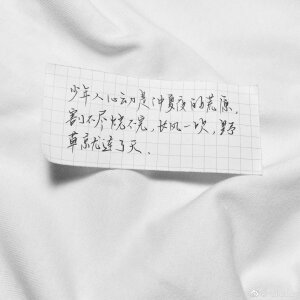 少年人心动是仲夏夜的荒原，
割不尽烧不完，长风一吹，野
草就连了天。